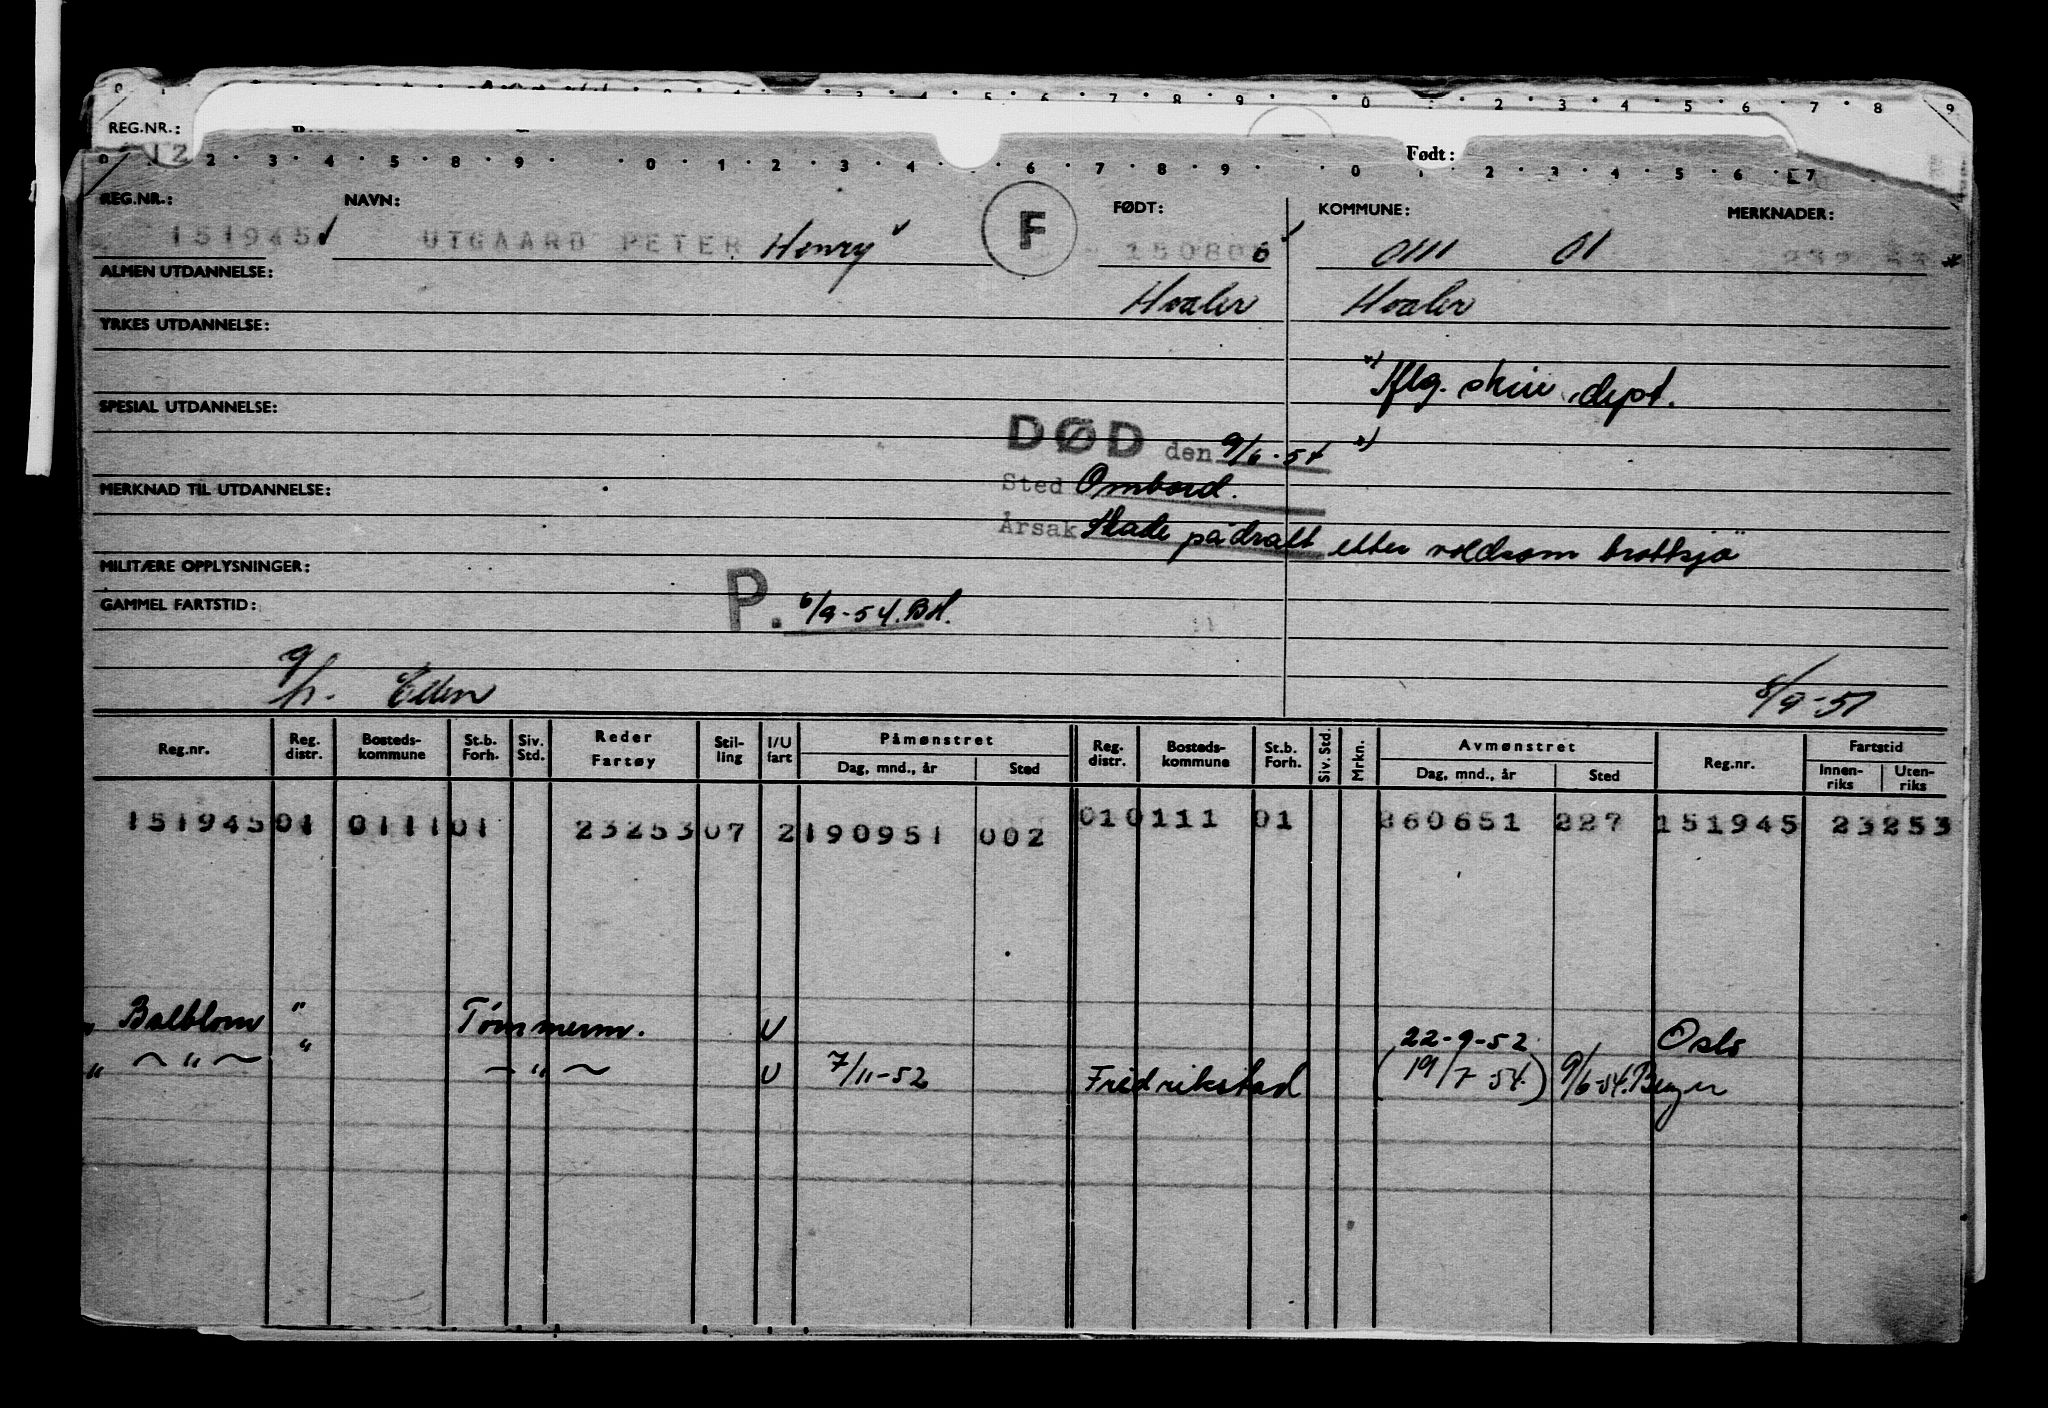 REG.NR.:
Født:
REG.NR.: NAVN: FØDT: KOMMUNE: MERKNADER:
151945 UTGAARD PETER Henry F 0111 01
ALMEN UTDANNELSE: Hvaler Hvaler
YRKES UTDANNELSE:
*) Iflg. skiv. dept.
SPESIAL UTDANNELSE:
DØD den 9/6-54 *)
MERKNAD TIL UTDANNELSE: Sted Ombord.
Årsak Skade pådratt etter voldsom brottsjø
MILITÆRE OPPLYSNINGER:
GAMMEL FARTSTID: P. 6/9-54. BH.
g/h. Ellen 8/9-51
Reg.nr. Reg. distr. Bosteds-kommune St.b. Forh. Siv. Std. Reder Fartøy Stil-ling I/U fart Påmønstret Dag, mnd., år Sted Reg. distr. Bosteds-kommune St.b. Forh. Siv. Std. Mrkn. Avmønstret Dag, mnd., år Sted Reg.nr. Fartstid Innen-riks Uten-riks
151945 01 0111 01 23253 07 2 190951 002 01 0111 01 260651 227 151945 23253
" Balblom " Tømmerm. U 22-9-52 Oslo
" — " — " — " — U 7/11-52 Fredrikstad (19/7-54.) 9/6-54.